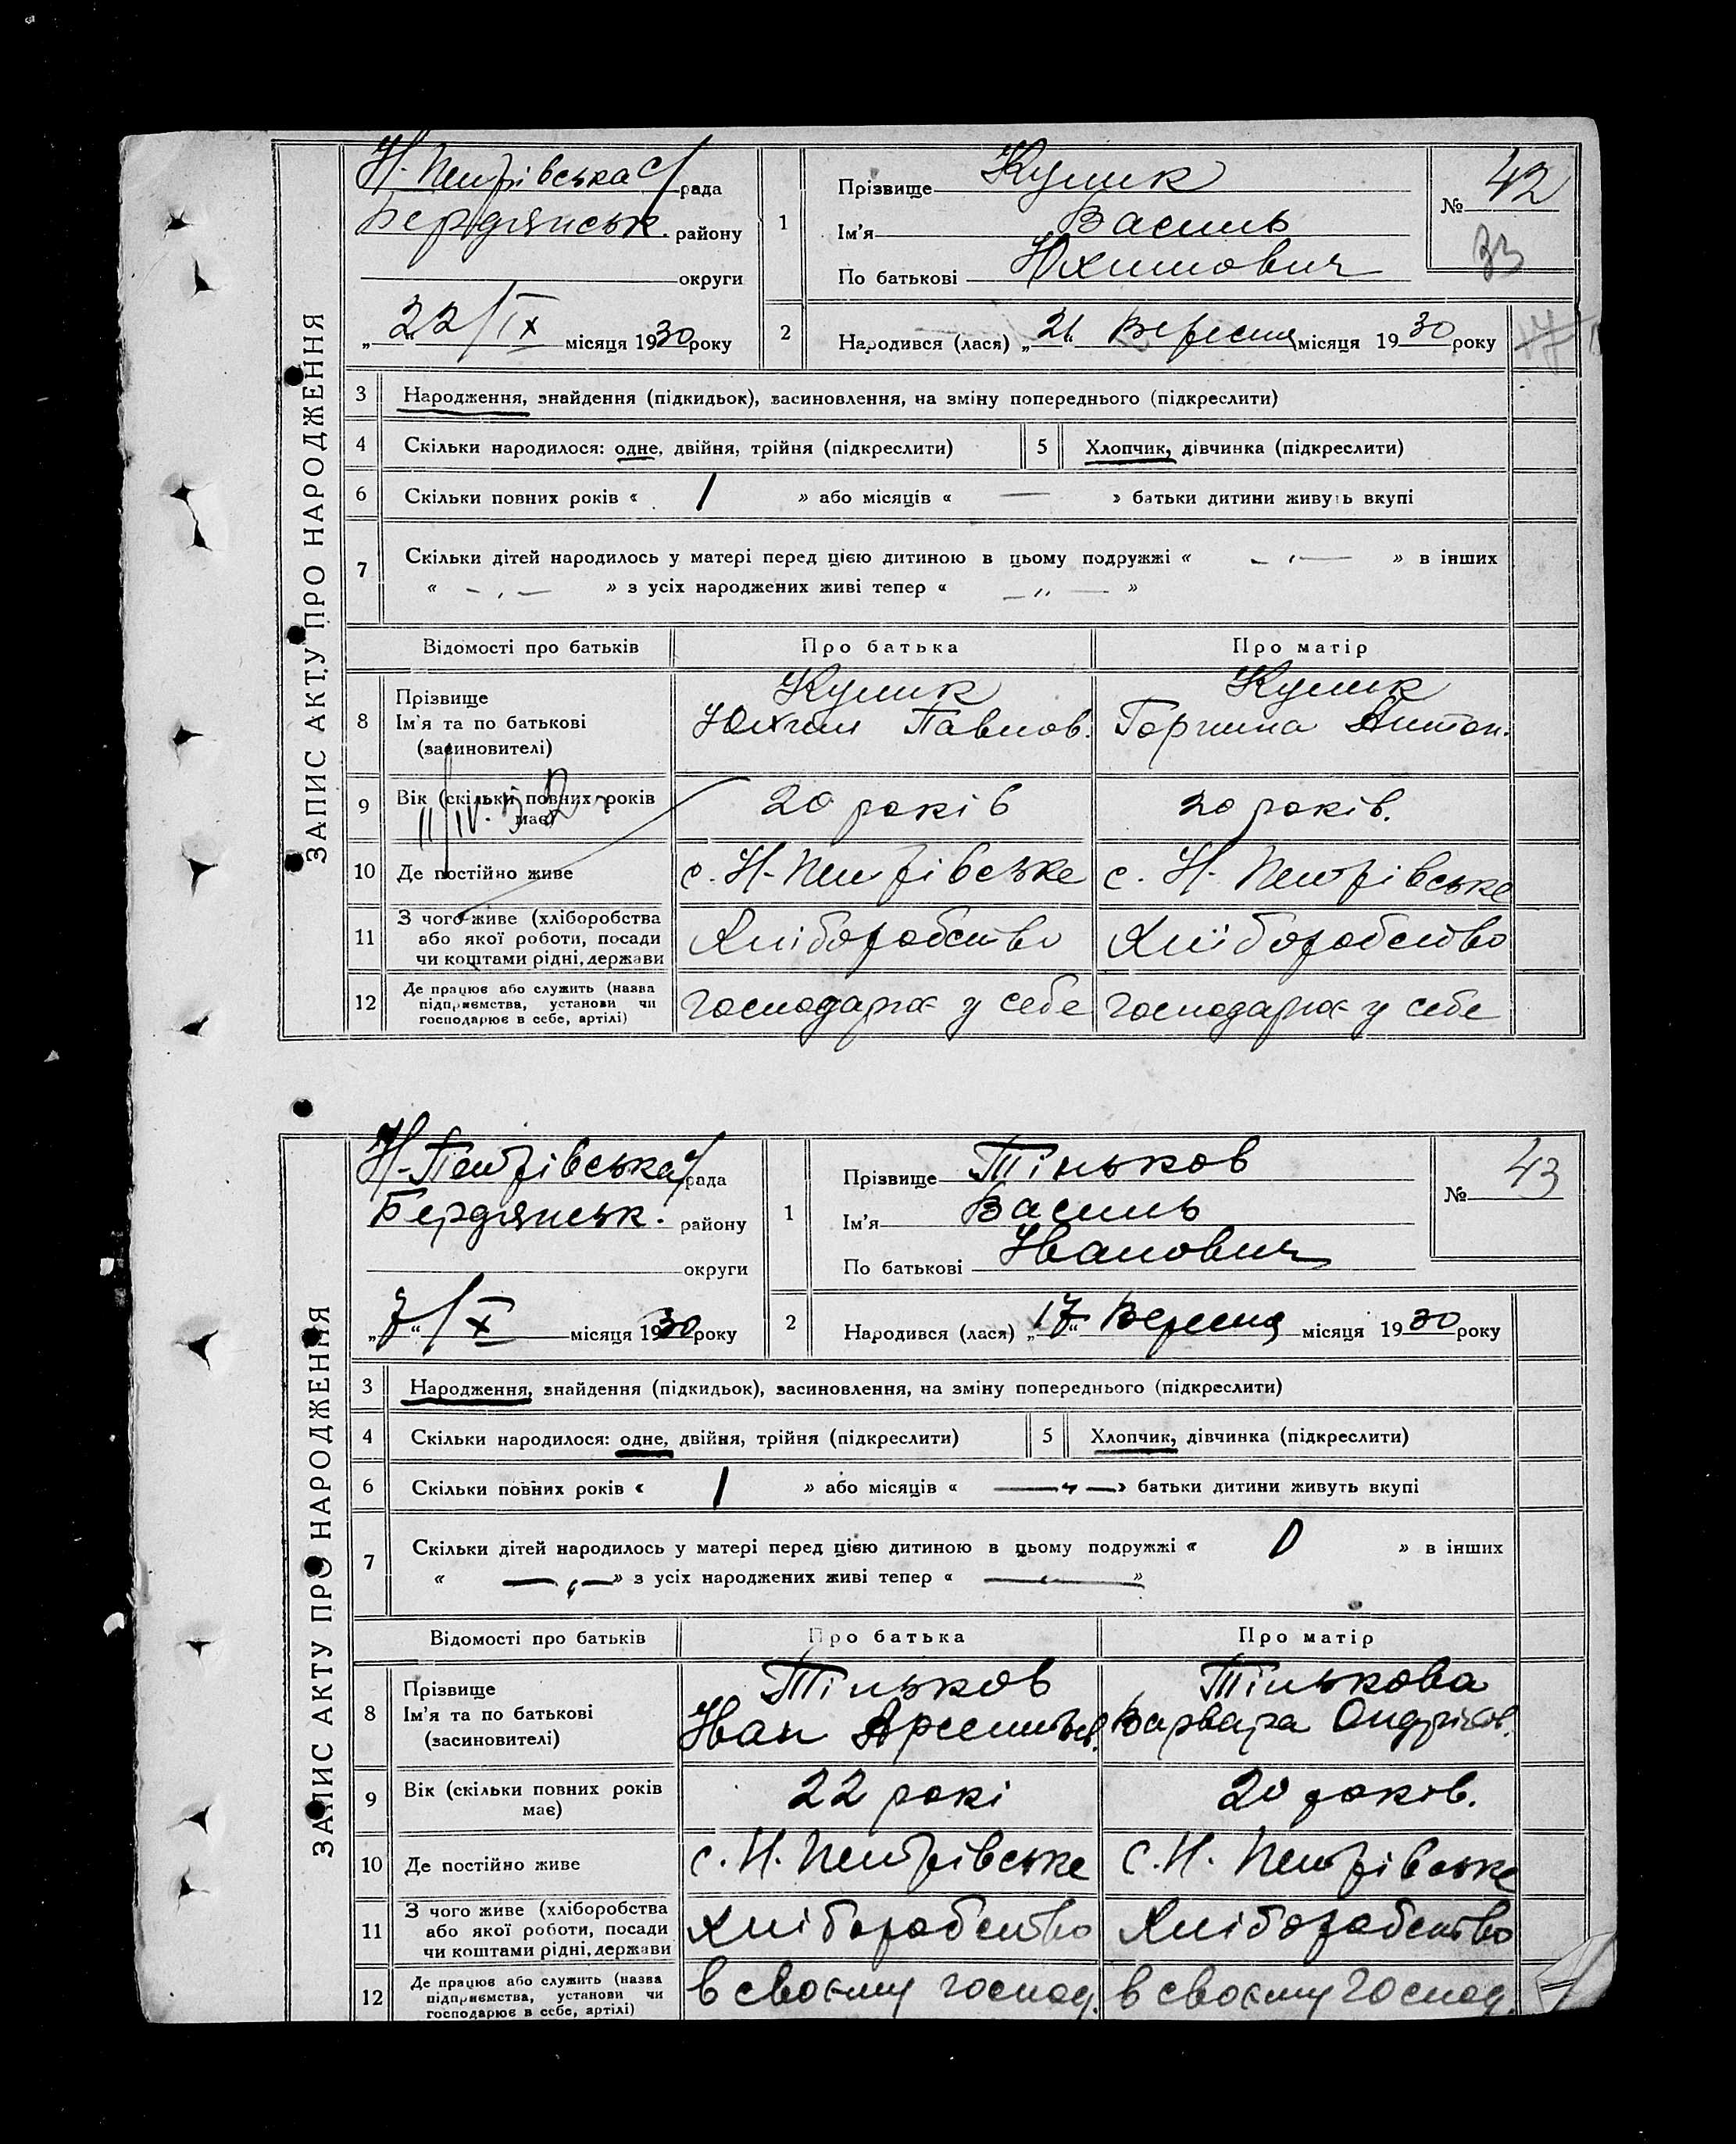 ЗАПИС АКТУ ПРО НАРОДЖЕННЯ
Н-Петрівська с/рада
Бердянськ. району
округи
„22/IX“ місяця 1930 року
1
Прізвище Кулик
Ім'я Василь
По батькові Юхимович
№ 42
33
2
Народився (лася) „21“ Вересня місяця 1930 року
3 Народження, знайдення (підкидьок), засиновлення, на зміну попереднього (підкреслити)
4 Скільки народилося: одне, двійня, трійня (підкреслити) 5 Хлопчик, дівчинка (підкреслити)
6 Скільки повних років « 1 » або місяців « — » батьки дитини живуть вкупі
7 Скільки дітей народилось у матері перед цією дитиною в цьому подружжі « —„— » в інших
« —„— » з усіх народжених живі тепер « —„— »
Відомості про батьків Про батька Про матір
8 Прізвище Ім'я та по батькові (засиновителі)
Кулик Кулик
Юхим Павлов. Горпина Антон.
9 Вік (скільки повних років має) 20 років 20 років.
10 Де постійно живе с. Н-Петрівське с. Н. Петрівське
11 З чого живе (хліборобства
або якої роботи, посади
чи коштами рідні, держави
Хліборобство Хліборобство
12 Де працює або служить (назва
підприємства, установи чи
господарює в себе, артілі)
господарює у себе господарює у себе
ЗАПИС АКТУ ПРО НАРОДЖЕННЯ
Н-Петрівська с/рада
Бердянськ. району
округи
„7“/X місяця 1930 року
1
Прізвище Тіньков
Ім'я Василь
По батькові Іванович
№ 43
2
Народився (лася) „17“ Вересня місяця 1930 року
3 Народження, знайдення (підкидьок), засиновлення, на зміну попереднього (підкреслити)
4 Скільки народилося: одне, двійня, трійня (підкреслити) 5 Хлопчик, дівчинка (підкреслити)
6 Скільки повних років « 1 » або місяців « —„— » батьки дитини живуть вкупі
7 Скільки дітей народилось у матері перед цією дитиною в цьому подружжі « 0 » в інших
« —„— » з усіх народжених живі тепер « —„— »
Відомості про батьків Про батька Про матір
8 Прізвище Ім'я та по батькові (засиновителі)
Тіньков Тінькова
Іван Арсентьев. Варвара Андріїв.
9 Вік (скільки повних років має) 22 рокі 20 років.
10 Де постійно живе с. Н. Петрівське с. Н. Петрівське
11 З чого живе (хліборобства
або якої роботи, посади
чи коштами рідні, держави
Хліборобство Хліборобство
12 Де працює або служить (назва
підприємства, установи чи
господарює в себе, артілі)
в своєму господ. в своєму господ.